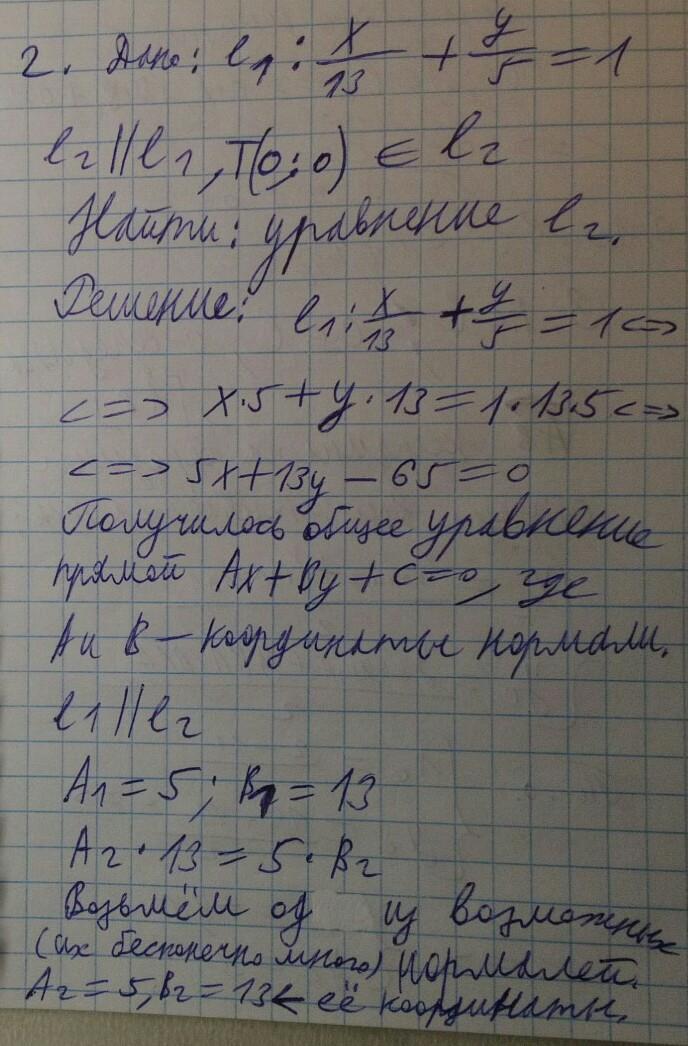 2. Дано: l1: x/13 + y/5 = 1
l2 || l1, T(0;0) ∈ l2
Найти: уравнение l2.
Решение: l1: x/13 + y/5 = 1 <=>
<=> x·5 + y·13 = 1·13·5 <=>
<=> 5x + 13y - 65 = 0
Получилось общее уравнение
прямой Ax + By + C = 0, где
A и B — координаты нормали.
l1 || l2
A1 = 5; B1 = 13
A2 · 13 = 5 · B2
Возьмём из возможных
(их бесконечно много) нормалей.
A2 = 5, B2 = 13 ← её координаты.